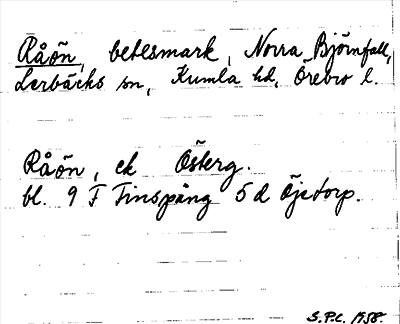 Råön, betesmark, Norra Björnfall,
Lerbäcks sn, Kumla hd, Örebro l.
Råön, ek Österg.
bl. 9 F Finspång 5 d Öjetorp.
S.P.C. 1958.